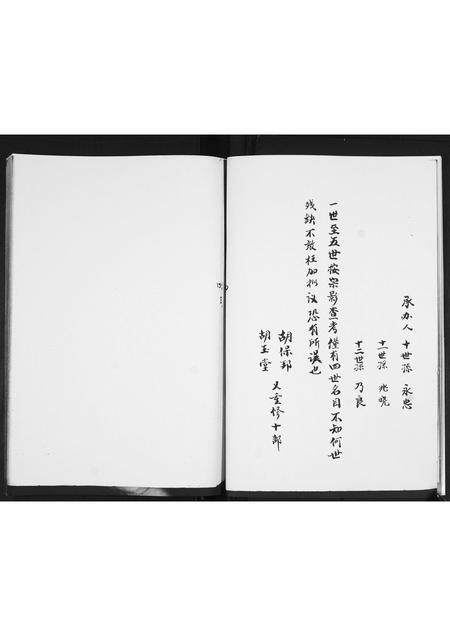 承办人 十世孫 永忠
十一世孫 兆曉
十二世孫 乃良
一世至五世按宗影查考僅有四世名目不知何世
残缺不敢枉加拟议恐有所误也
胡保邦
胡玉堂 又重修十部